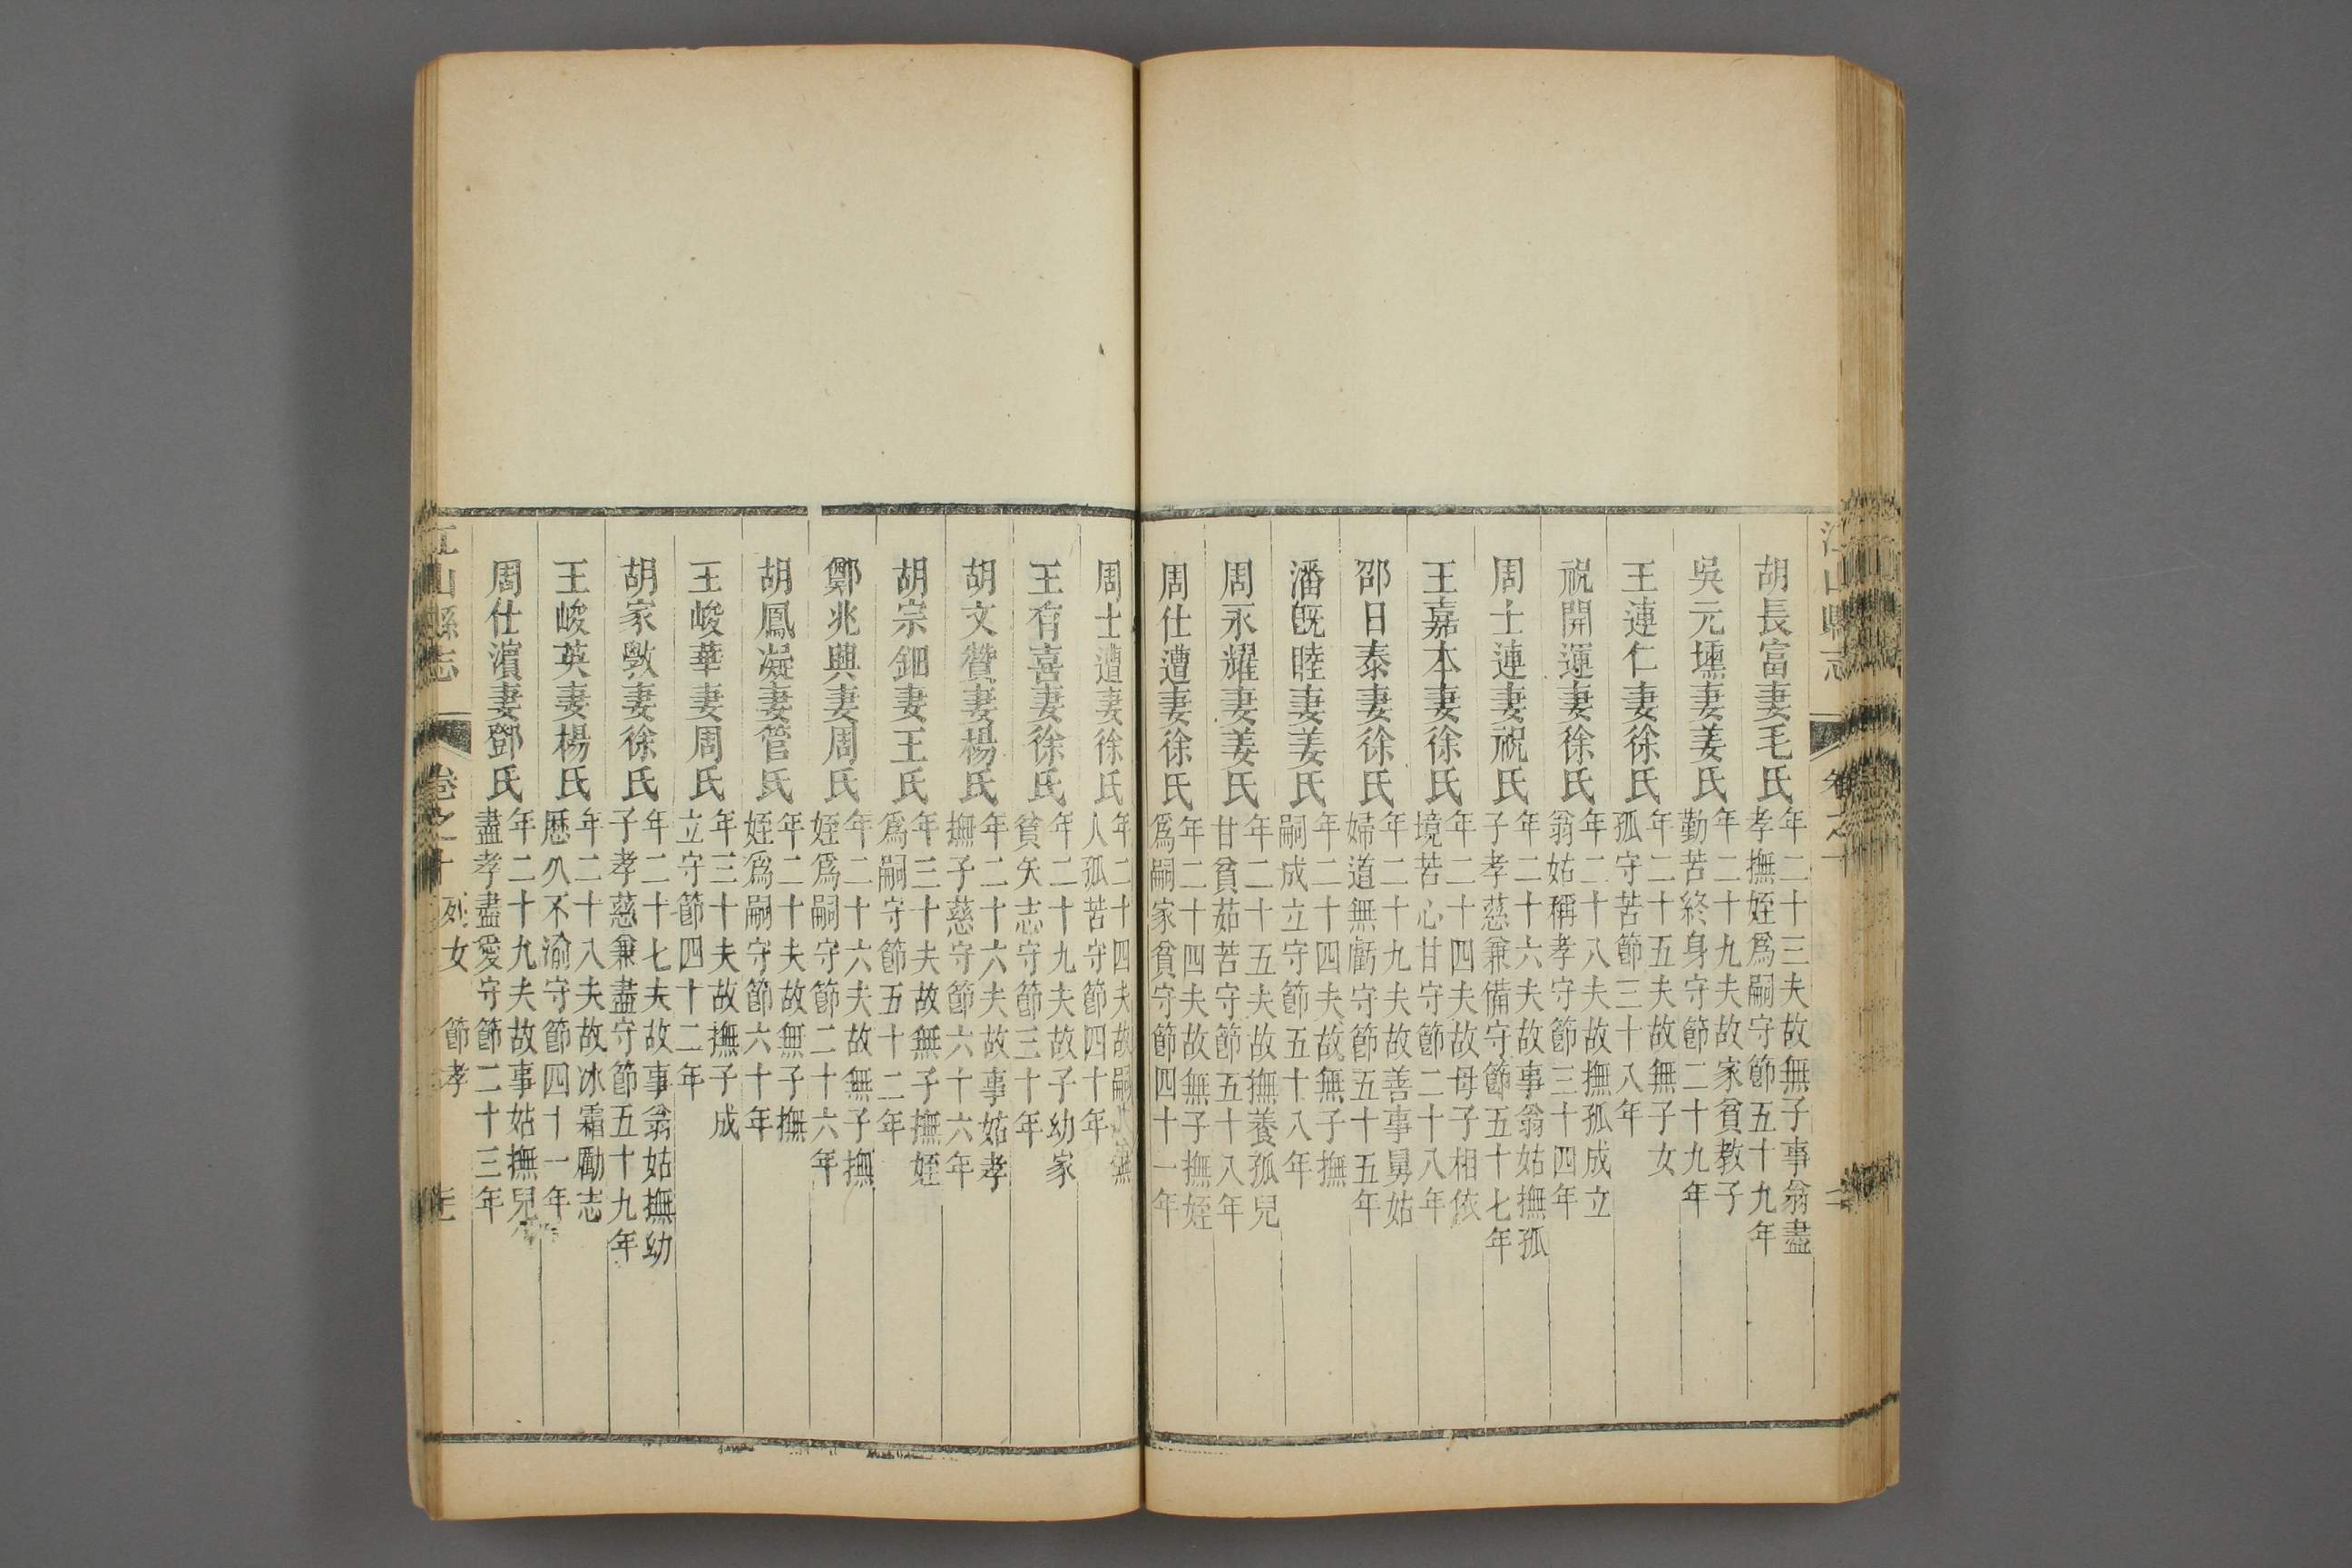 江山縣志
卷之十
胡長富妻毛氏 年二十三夫故無子事翁盡孝撫姪爲嗣守節五十九年
吳元壎妻姜氏 年二十九夫故家貧教子勤苦終身守節二十九年
王連仁妻徐氏 年二十五夫故無子女孤守苦節三十八年
祝開運妻徐氏 年二十八夫故撫孤成立翁姑稱孝守節三十四年
周士連妻祝氏 年二十六夫故事翁姑撫孤子孝慈兼備守節五十七年
王嘉本妻徐氏 年二十四夫故母子相依境苦心甘守節二十八年
邵日泰妻徐氏 年二十九夫故善事舅姑婦道無虧守節五十五年
潘旣睦妻姜氏 年二十四夫故無子撫嗣成立守節五十八年
周永耀妻姜氏 年二十五夫故撫養孤兒甘貧茹苦守節五十八年
周仕遭妻徐氏 年二十四夫故無子撫姪爲嗣家貧守節四十一年
周士遭妻徐氏 年二十四夫故嗣無人孤苦守節四十年
王有喜妻徐氏 年二十九夫故子幼家貧矢志守節三十年
胡文贊妻楊氏 年二十六夫故事姑孝撫子慈守節六十六年
胡宗鈿妻王氏 年三十夫故無子撫姪爲嗣守節五十二年
鄭兆興妻周氏 年二十六夫故無子撫姪爲嗣守節二十六年
胡鳳凝妻管氏 年二十夫故無子撫姪爲嗣守節六十年
王峻華妻周氏 年三十夫故撫子成立守節四十二年
胡家斆妻徐氏 年二十七夫故事翁姑撫幼子孝慈兼盡守節五十九年
王峻英妻楊氏 年二十八夫故冰霜勵志歷久不渝守節四十一年
周仕濵妻鄧氏 年二十九夫故事姑撫兒盡孝盡愛守節二十三年
江山縣志
卷之十 列女 節孝